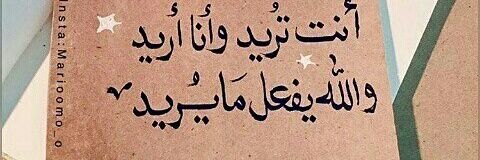 أنت تُريد وأنا أريد
والله يفعل مَا يُريد
Insta:Marioomo_o